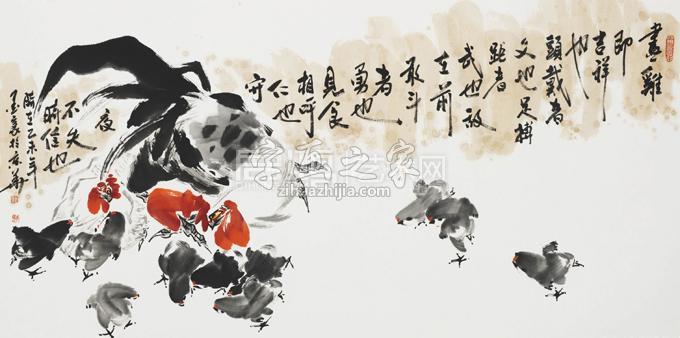 畫雞
即
吉祥
也
頭戴者
文也足搏
距者
武也敌
在前
敢斗
者
勇也
見食
相呼
仁也
守
夜
不失
時信也
歲在乙未年
於京華
字画之家
zihuazhijia.com